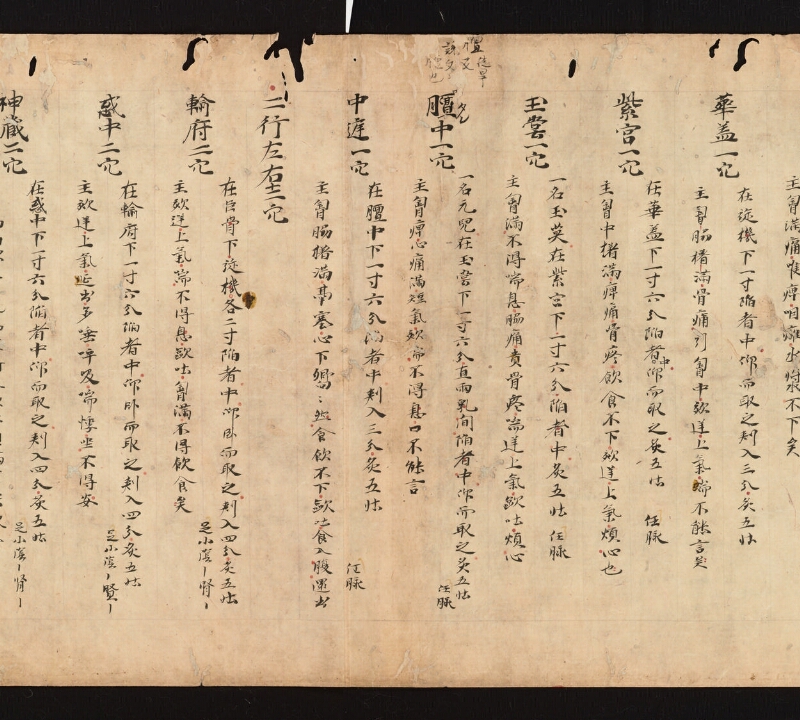 主胷滿痛喉痺咽癰水漿不下矣
華盖一穴
在琁機下一寸陷者中仰而取之刾入三分灸五壮
主胷脇榰滿骨痛引胷中欬逆上氣喘不能言矣
紫宫一穴
在華盖下一寸六分陷者中仰而取之灸五壮 任脉
主胷中榰滿痺痛骨疼飲食不下欬逆上氣煩心也
玉堂一穴
一名玉英在紫宫下一寸六分陷者中灸五壮 任脉
主胷滿不得喘息脇痛賁骨疼喘逆上氣歐吐煩心
膻中一穴
一名元兒在玉堂下一寸六分直兩乳间陷者中仰而取之灸五壮 任脉
主胷痺心痛滿短氣欬喘不得息口不能言
中庭一穴
在膻中下一寸六分陷者中刾入三分灸五壮 任脉
主胷脇榰滿鬲塞心下嚮〻然食飲不下歐吐食入腹還出
二行左右十二穴
輸府二穴
在巨骨下琁機各二寸陷者中仰卧而取之刾入四分灸五壮 足小陰 腎
主欬逆上氣喘不得息歐吐胷滿不得飲食矣
彧中二穴
在輸府下一寸六分陷者中仰卧而取之刾入四分灸五壮 足小陰 腎
主欬逆上氣涎出多唾呼吸喘悸坐不得安
神蔵二穴
在彧中下一寸六分陷者中仰而取之刾入四分灸五壮 足小陰 腎